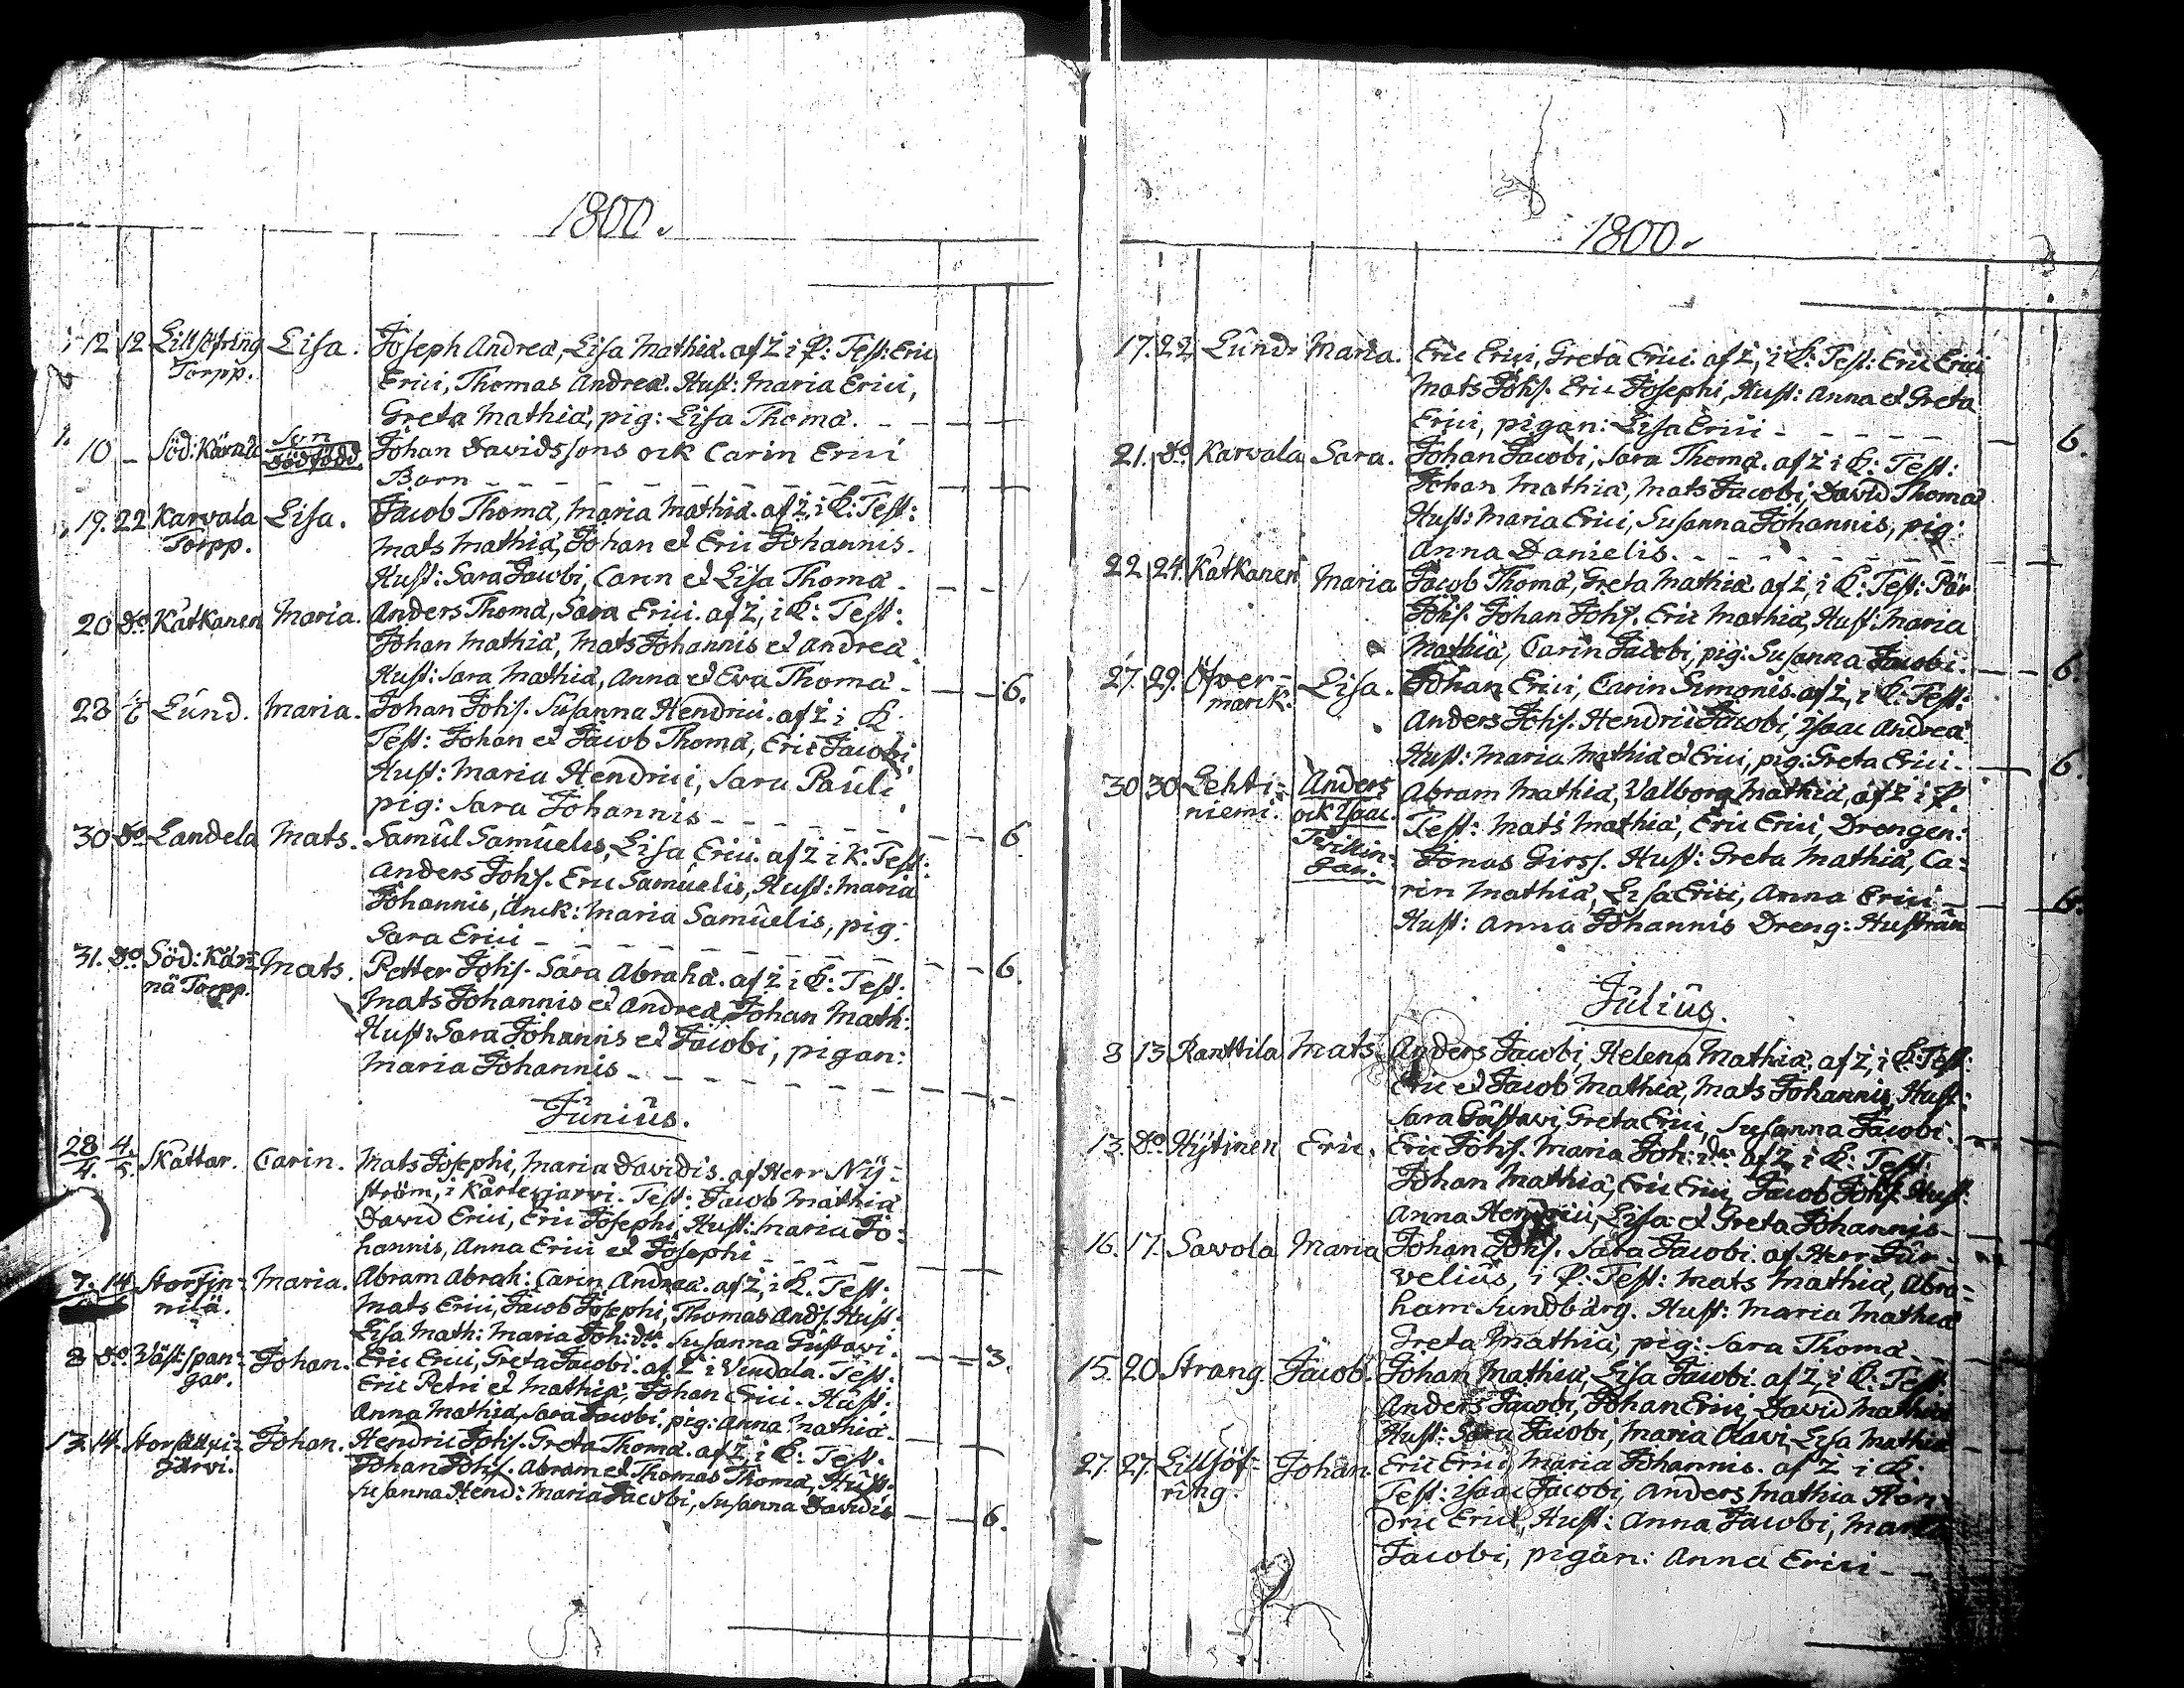 1800.
12 12 Lillsöfring Lisa. Joseph Andreæ, Lisa Mathiæ. af Z i P: Test: Eric
Torpp. Erici, Thomas Andreæ. Hust: Maria Erici,
Greta Mathiæ, pig: Lisa Thomæ. - - - -
10 - Söd: Kärnä Son Johan Davidssons ock Carin Erici
dödfödd. Barn - - - -
19. 22 Karvala Lisa. Jacob Thomæ, Maria Mathiæ. af Z, i K: Test:
Torpp. Mats Mathiæ, Johan et Eric Johannis.
Hust: Sara Jacobi, Carin et Lisa Thomæ - - -
20 do Kätkänen Maria. Anders Thomæ, Sara Erici. af Z, i K: Test:
Johan Mathiæ, Mats Johannis et Andreæ.
Hust: Sara Mathiæ, Anna et Eva Thomæ - - - 6.
28 Lund. Maria. Johan Johs. Susanna Hendrici. af Z i K
Test: Johan et Jacob Thomæ, Eric Jacobi
Hust: Maria Hendrici, Sara Pauli
pig: Sara Johannis - - - - 6
30 do Landela Mats. Samul Samuelis, Lisa Erici. af Z i K. Test:
Anders Johs. Eric Samuelis, Hust: Maria
Johannis, änck: Maria Samuelis, pig:
Sara Erici - - - - 6
31. do Söd: Kär= Mats. Petter Johs. Sara Abrahæ. af Z i K: Test.
nä Torpp. Mats Johannis et Andreæ, Johan Math:
Hust: Sara Johannis et Jacobi, pigan:
Maria Johannis - - - -
Junius.
28/4. 4./5. Skattar. Carin. Mats Josephi, Maria Davidis. af Herr Nÿ=
ström, i Kortesjarvi. Test: Jacob Mathiæ
David Erici, Eric Josephi, Hust: Maria Jo=
hannis, Anna Erici et Josephi - - - -
7. 14 Storfin= Maria. Abram Abrah: Carin Andreæ. af Z, i K. Test:
nilä. Mats Erici, Jacob Josephi, Thomas Ands. Hust:
Lisa Math: Maria Joh:dr. Susanna Gustavi. - - 3.
8 do. Väst: span= Johan. Eric Erici, Greta Jacobi. af Z i Vindala. Test.
gar. Eric Petri et Mathiæ, Johan Erici. Hust:
Anna Mathiæ, Sara Jacobi, pig: Anna Mathiæ. - -
13. 14. Johan. Hendric Johs. Greta Thomæ. af Z, i K: Test.
järvi. Johan Johs. Abram et Thomas Thomæ, Hust.
Susanna Hend: Maria Jacobi, Susanna Davidis - - 6.
1800.
17. 22 Lund. Maria. Eric Erici, Greta Erici. af Z, i K: Test: Eric Erici
Mats Johs. Eric Josephi, Hust: Anna et Greta
Erici, pigan: Lisa Erici - - - - 6.
21. do. Karvala Sara. Johan Jacobi, Sara Thomæ. af Z i K: Test:
Johan Mathiæ, Mats Jacobi, David Thomæ
Hust: Maria Erici, Susanna Johannis, pig:
Anna Danielis. - - - -
22 24. Kätkänen Maria Jacob Thomæ, Greta Mathiæ af Z, i K: Test: Pär
Johs. Johan Johs. Eric Mathiæ, Hust: Maria
Mathiæ, Carin Jacobi, pig: Susanna Jacobi. - - 6.
27. 29. Öfver= Lisa. Johan Erici, Carin Simonis. af Z, i K: Test:
marck. Anders Johs. Hendric Jacobi, Isaac Andreæ
Hust: Maria Mathiæ et Erici, pig: Greta Erici. - 6.
30 30 Lehti= Anders Abram Mathiæ, Valborg Mathiæ, af Z i P.
niemi. ock Isaac. Test: Mats Mathiæ, Eric Erici, Drengen:
Tvillin= Jonas Girss. Hust: Greta Mathiæ, Ca=
gar. rin Mathiæ, Lisa Erici, Anna Erici - - 6.
Hust: Anna Johannis Dreng: Hustrun
Julius.
8 13 Ranttila Mats. Anders Jacobi, Helena Mathiæ. af Z, i K: Test:
Eric et Jacob Mathiæ, Mats Johannis, Hust:
Sara Gustavi, Greta Erici, Susanna Jacobi. - -
13. do. Hÿtinen Eric. Eric Johs. Maria Joh:dr. af Z, i K: Test:
Johan Mathiæ, Eric Erici, Jacob Johs. Hust:
Anna Hendrici, Lisa et Greta Johannis - -
16. 17. Savola Maria Johan Johs. Sara Jacobi. af Herr
velius, i P: Test: Mats Mathiæ, Abra=
ham Sundbärg. Hust: Maria Mathiæ
Greta Mathiæ, pig: Sara Thomæ -
15. 20. Strang. Jacob. Johan Mathiæ, Lisa Jacobi. af Z, i K: Test:
Anders Jacobi, Johan Erici, David Mathiæ
Hust: Sara Jacobi, Maria Olavi, Lisa Mathiæ -
27. 27. Lillsöf= Johan. Eric Erici, Maria Johannis. af Z i K:
ring. Test: Isaac Jacobi, Anders Mathiæ Hen
dric Erici, Hust: Anna Jacobi,
Jacobi, pigan: Anna Erici - -